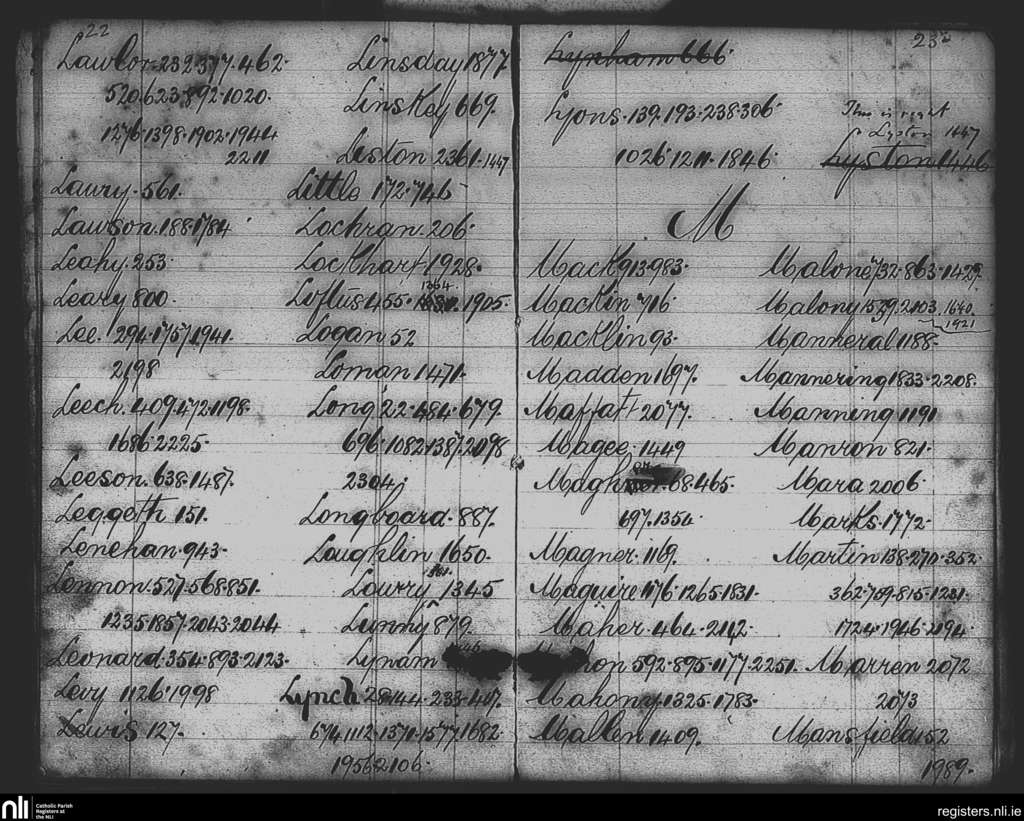 22
Lawlor. 232.377.462.
520.623.892.1020.
1276.1398.1902.1944
2211
Laury. 561.
Lawson. 188.1784
Leahy. 253.
Leary 800.
Lee. 294.1757.1941.
2198
Leech. 409.472.1198.
1686.2225.
Leeson. 638.1487.
Leggeth 151.
Lenehan. 943.
Lennon. 527.568.851.
1235.1857.2043.2044
Leonard. 354.893.2123.
Levy 1126.1998
Lewis 127.
Linsday 1877
Linskey 669.
Liston 2361.1447
Little 172.746
Lochran. 206.
Lockhart 1928.
1364.
Loftus 455. 1905.
Logan 52
Loman 1471.
Long 22.484.679.
696.1082.1387.2098
2304.
Longboard. 887.
Loughlin 1650.
Lowry 1345
Lunny 879.
Lynam
Lynch 28.144.233.407.
674.1112.1371.1577.1682.
1956.2106.
23
Lynham 666.
Lyons. 139.193.238.306.
1026.1211.1846.
This is right
Lyston 1447
Lyston 1446
M
Mack 913.983.
Mackin 716
Macklin 93.
Madden 1697.
Maffat 2077.
Magee. 1449
Magh 68.465.
697.1354.
Magner. 1169.
Maguire 1176.1265.1831.
Maher. 464.2112.
592.895.1177.2251.
Mahony. 1325.1783.
Mallen 1409.
Malone 732.863.1429.
Malony 1539.2103. 1640.
1921
Manneral 1188.
Mannering 1833.2208.
Manning 1191
Manron 821.
Mara 2006.
Marks. 1772.
Martin 138.270.352.
362.759.815.1231.
1724.1946.2194.
Marren 2072
2073
Mansfield 152
1989.
nli
Catholic Parish
Registers at
the NLI
registers.nli.ie